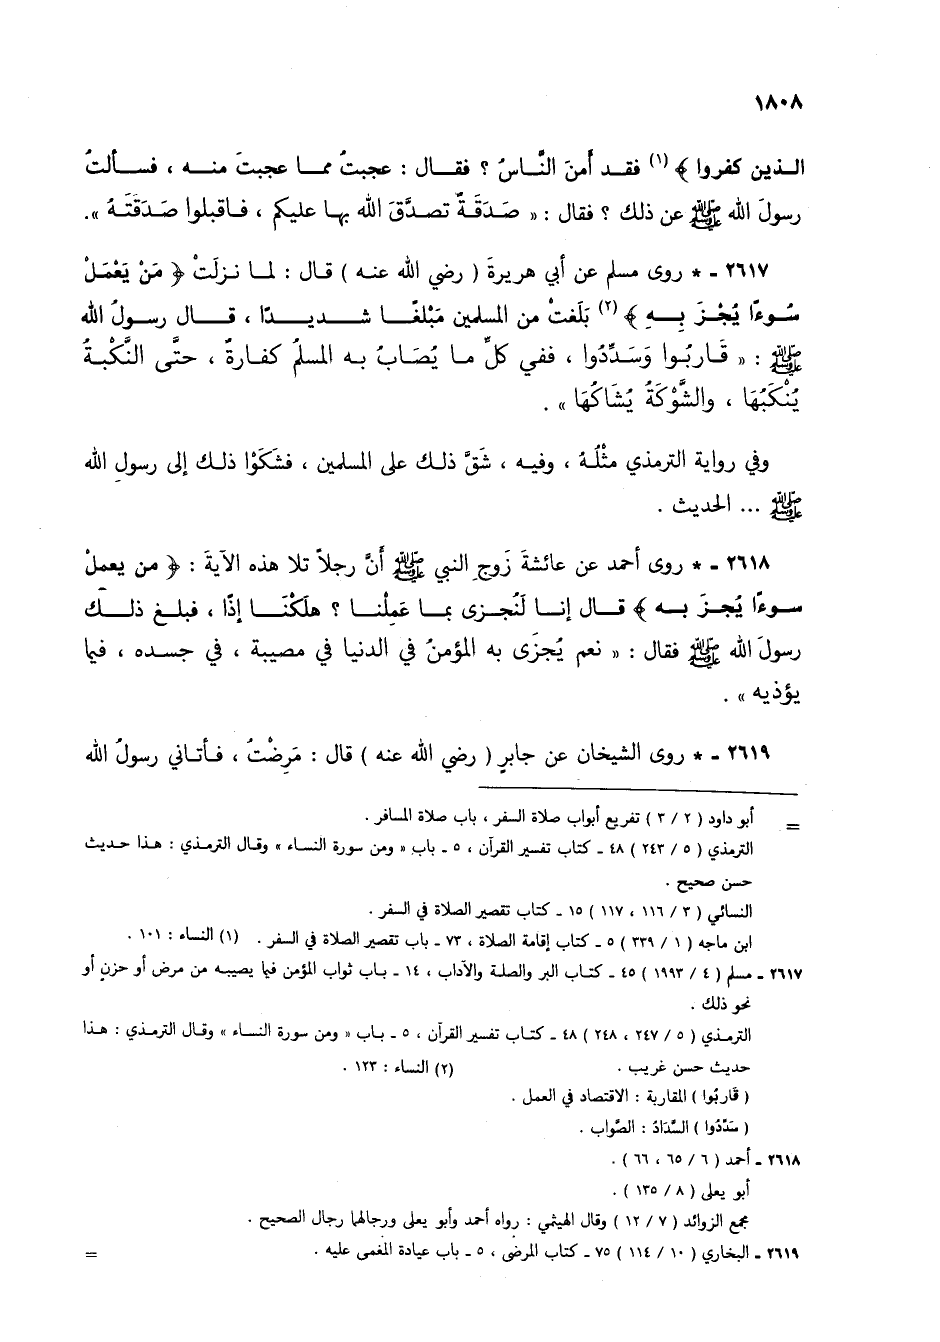 ١٨٠٨
الذين كفروا ﴾ (١) فقد أَمنَ النَّاسُ ؟ فقال : عجبتُ مما عجبتَ منه ، فسألتُ
رسولَ الله ﷺ عن ذلك ؟ فقال : « صَدَقَةٌ تصدَّقَ الله بها عليكم ، فاقبلوا صَدَقَتَهُ ».
٢٦١٧ - * روى مسلم عن أبي هريرةَ ( رضي الله عنه ) قال : لما نزلَتْ ﴿ مَنْ يَعْمَلْ
سُوءًا يُجْزَ بِهِ ﴾ (٢) بَلَغتْ من المسلمين مَبْلغًا شديدًا ، قال رسولُ الله
ﷺ : « قَاربُوا وَسَدِّدُوا ، ففي كلِّ ما يُصَابُ به المسلمُ كفارةٌ ، حتَّى النَّكْبةُ
يُنْكَبُهَا ، والشَّوْكَةُ يُشاكُهَا » .
وفي رواية الترمذي مثْلُهُ ، وفيه ، شَقَّ ذلك على المسلمين ، فشكَوْا ذلك إلى رسول الله
ﷺ ... الحديث .
٢٦١٨ - * روى أحمد عن عائشةَ زَوجِ النبي ﷺ أنَّ رجلاً تلا هذه الآيةَ : ﴿ من يعملْ
سوءًا يُجزَ به ﴾ قال إنا لَنُجزى بما عَمِلْنا ؟ هلَكْنَا إذًا ، فبلغ ذلك
رسولَ الله ﷺ فقال : « نعم يُجزَى به المؤمنُ في الدنيا في مصيبة ، في جسده ، فيما
يؤذيه » .
٢٦١٩ - * روى الشيخان عن جابرٍ ( رضي الله عنه ) قال : مَرضْتُ ، فأتاني رسولُ الله
= أبو داود ( ٢ / ٣ ) تفريع أبواب صلاة السفر ، باب صلاة المسافر .
الترمذي ( ٥ / ٢٤٣ ) ٤٨ - كتاب تفسير القرآن ، ٥ - باب « ومن سورة النساء » وقال الترمذي : هذا حديث
حسن صحيح .
النسائي ( ٣ / ١١٦ ، ١١٧ ) ١٥ - كتاب تقصير الصلاة في السفر .
ابن ماجه ( ١ / ٣٣٩ ) ٥ - كتاب إقامة الصلاة ، ٧٣ - باب تقصير الصلاة في السفر . (١) النساء : ١٠١ .
٢٦١٧ - مسلم ( ٤ / ١٩٩٣ ) ٤٥ - كتاب البر والصلة والآداب ، ١٤ - باب ثواب المؤمن فيما يصيبه من مرض أو حزنٍ أو
نحو ذلك .
الترمذي ( ٥ / ٢٤٧ ، ٢٤٨ ) ٤٨ - كتاب تفسير القرآن ، ٥ - باب « ومن سورة النساء » وقال الترمذي : هذا
حديث حسن غريب . (٢) النساء : ١٢٣ .
( قَاربُوا ) المقاربة : الاقتصاد في العمل .
( سَدِّدُوا ) السَّدَادُ : الصَّواب .
٢٦١٨ - أحمد ( ٦ / ٦٥ ، ٦٦ ) .
أبو يعلى ( ٨ / ١٣٥ ) .
مجمع الزوائد ( ٧ / ١٢ ) وقال الهيثمي : رواه أحمد وأبو يعلى ورجالهما رجال الصحيح .
٢٦١٩ - البخاري ( ١٠ / ١١٤ ) ٧٥ - كتاب المرضى ، ٥ - باب عيادة المغمى عليه . =